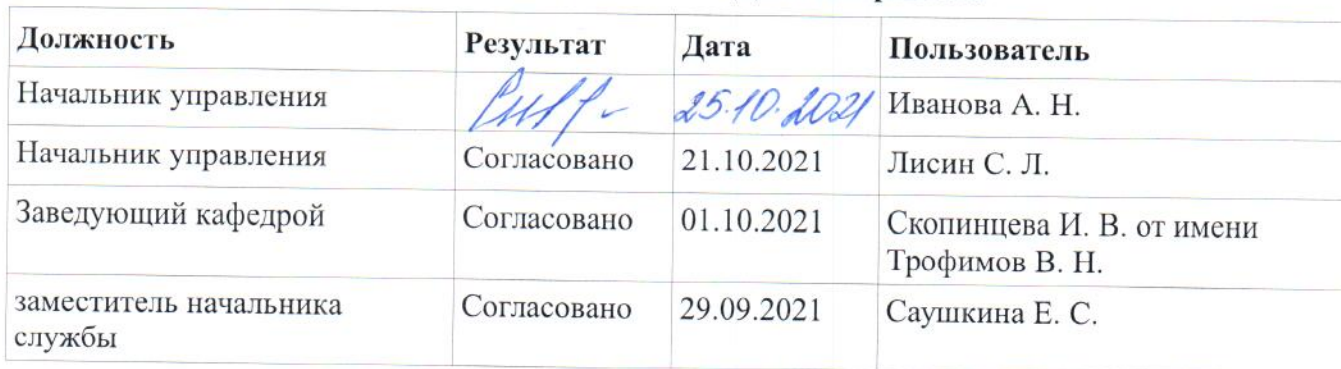 Должность Результат Дата Пользователь
Начальник управления 25.10.2021 Иванова А. Н.
Начальник управления Согласовано 21.10.2021 Лисин С. Л.
Заведующий кафедрой Согласовано 01.10.2021 Скопинцева И. В. от имени
Трофимов В. Н.
заместитель начальника Согласовано 29.09.2021 Саушкина Е. С.
службы